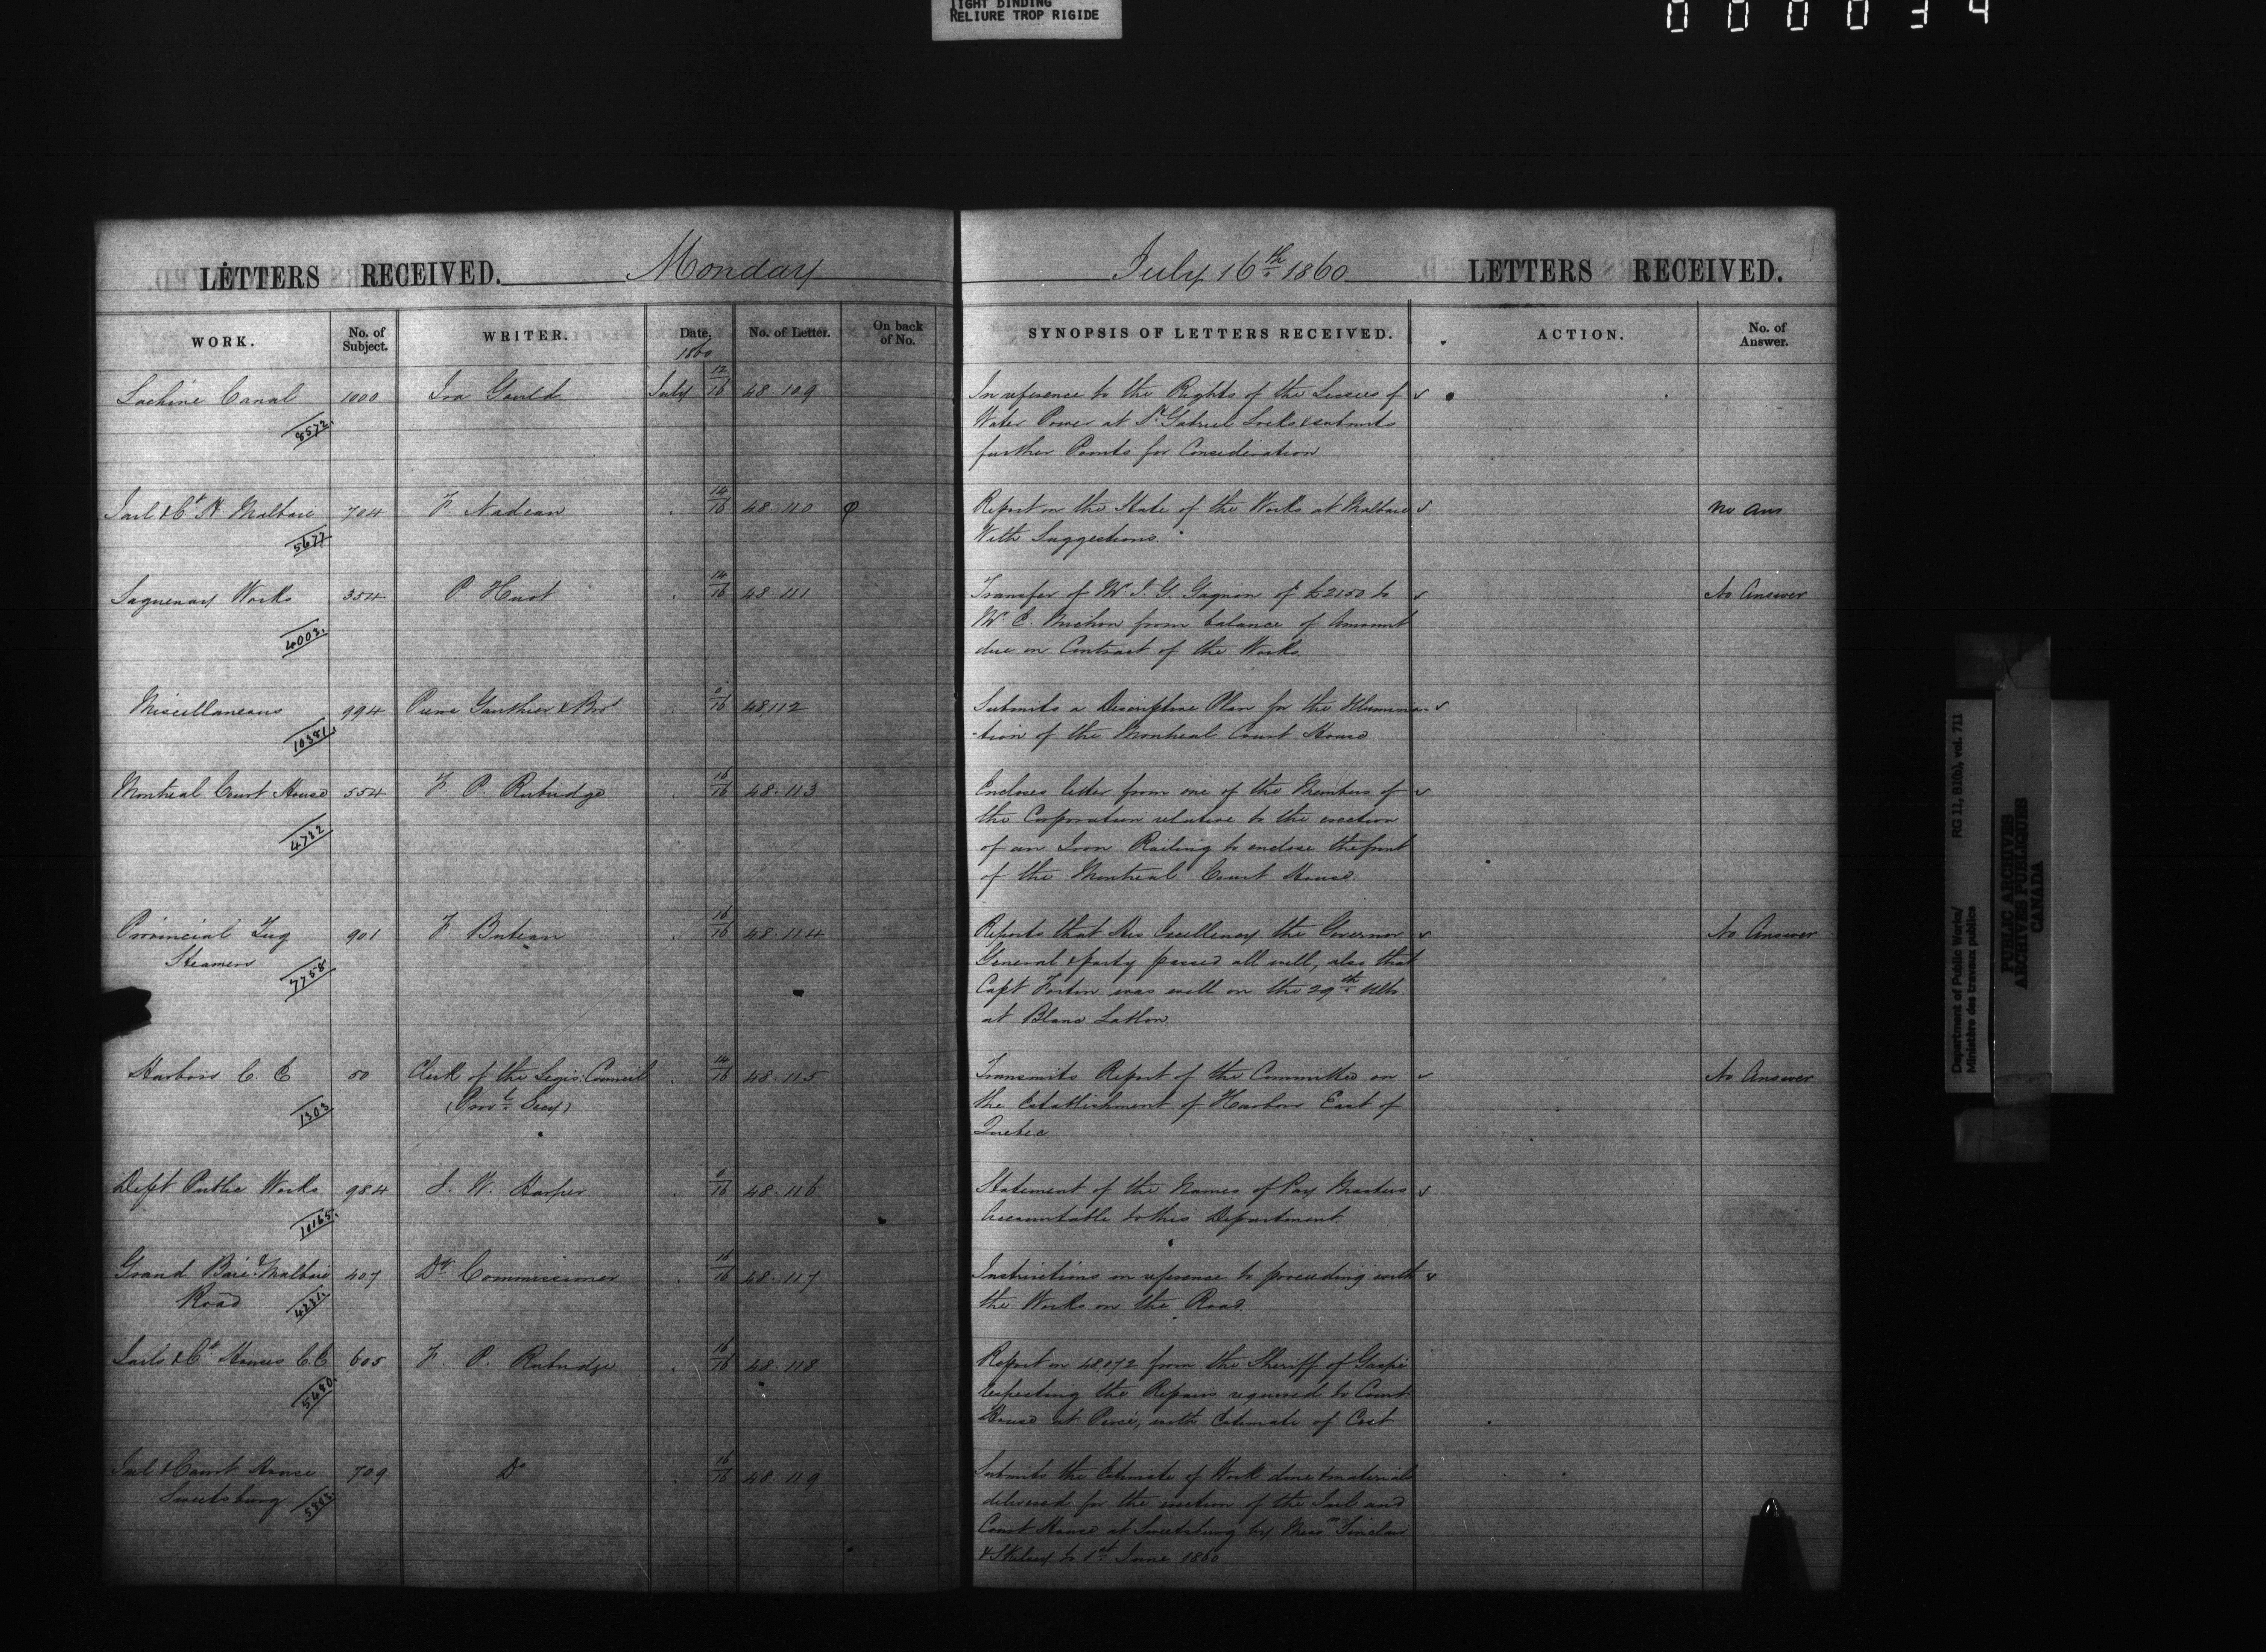 TIGHT BINDING
RELIURE TROP RIGIDE
000034
LETTERS RECEIVED. Monday
WORK. No. of Subject. WRITER. Date. No. of Letter. On back of No.
1860
Lachine Canal 1000 Ira Gould July 12/16 48.109
8572
Jail & Ct H Malbaie 704 F. Nadeau 14/16 48.110
5677
Saguenay Works 354 P. Huot 14/16 48.111
4003
Miscellaneous 994 Gauthier & Bro 48,112
10381
Montreal Court House 554 F. P. Rubidge 16/16 48.113
4732
Provincial Tug 901 F Buteau 16/16 48.114
Steamers
7758
Harbors C. E 50 Clerk of the Legis: Council 14/16 48.115
(Provl Secy)
1303
Dept Public Works 984 J. W. Harper 48.116
10165
Grand Baie & Malbaie 407 Dy Commissioner 16/16 48.117
Road
4231
Jails & Ct Houses C.E 605 F. P. Rubidge 16/16 48.118
5480
Jail & Court House 709 Do 16/16 48.119
Sweetsburg
5803
July 16th 1860 LETTERS RECEIVED.
SYNOPSIS OF LETTERS RECEIVED. ACTION. No. of Answer.
In reference to the Rights of the Lessees of
Water Power at St Gabriel Locks & submits
further Points for Consideration
Report on the State of the Works at Malbaie No Ans
With Suggestions.
Transfer of Mr T. G. Gagnon of £2150 to No Answer
Mr C. from balance of Amount
due on Contract of the Works.
Submits a Descriptive Plan for the Illumina-
-tion of the Montreal Court House
Encloses letter from one of the Members of
the Corporation relative to the erection
of an Iron Railing to enclose the front
of the Montreal Court House.
Reports that His Excellency the Governor No Answer
General & party passed all well, also that
Capt Fortin was well on the 29th Ulto.
at Blanc Sablon
Transmits Report of the Committee on No Answer
the Establishment of Harbors East of
Quebec
Statement of the Names of Pay Masters
Accountable to this Department.
Instructions in reference to proceeding with
the Works on the Road.
Report on 48072 from the Sheriff of Gaspé
respecting the Repairs required to Court
House at Percé, with Estimate of Cost
Submits the Estimate of Work done & materials
delivered for the erection of the Jail and
Court House at Sweetsburg by Messrs Sinclair
& Skelsey to 1st June 1860
Department of Public Works/ RG 11, B1(b), vol. 711
Ministère des travaux publics
PUBLIC ARCHIVES
ARCHIVES PUBLIQUES
CANADA